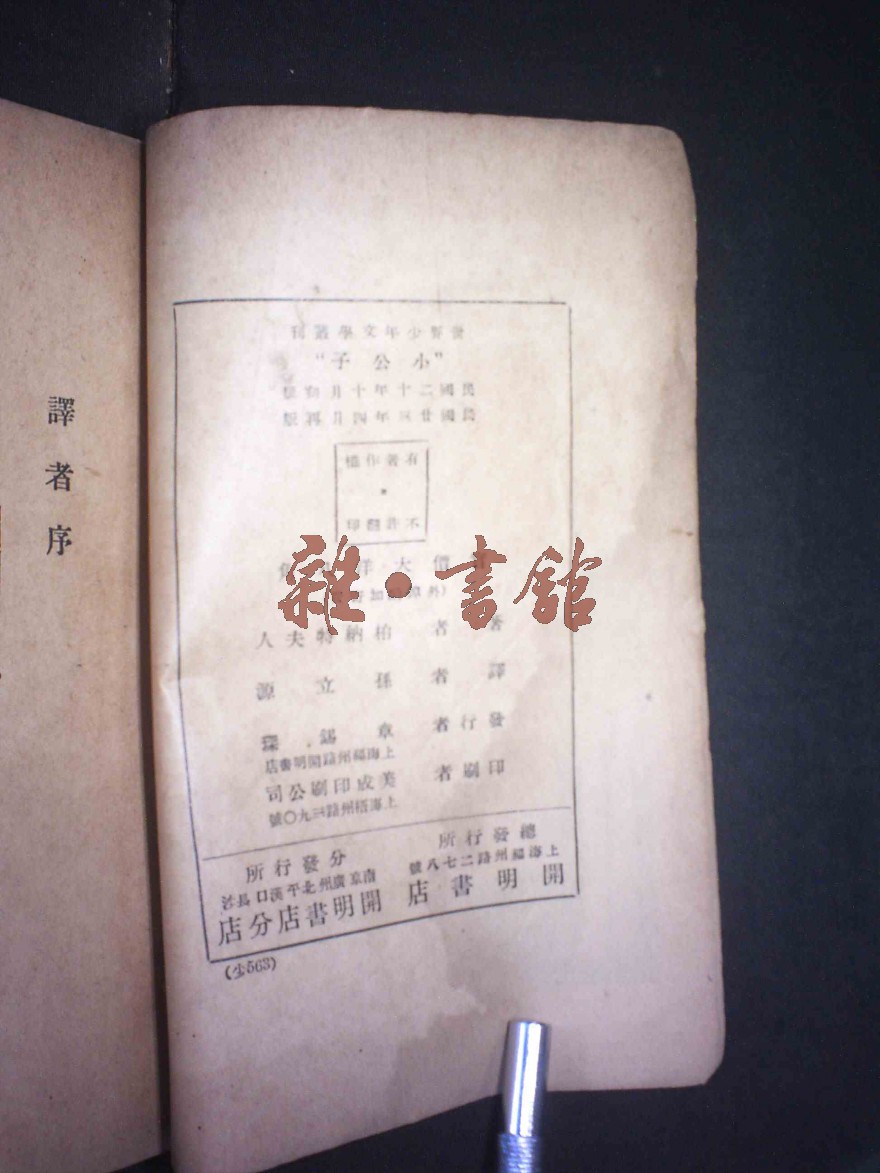 譯者序
世界少年文學叢刊
“小公子”
民國二十年十月初版
民國廿三年四月再版
有著作權
不許翻印
價大洋
雜·書館
著者 柏納特夫人
譯者 孫立源
發行者 章錫琛
上海福州路開明書店
印刷者 美成印刷公司
上海梧州路三九〇號
總發行所
上海福州路二七八號
開明書店
分發行所
南京廣州北平漢口長沙
開明書店分店
(少563)